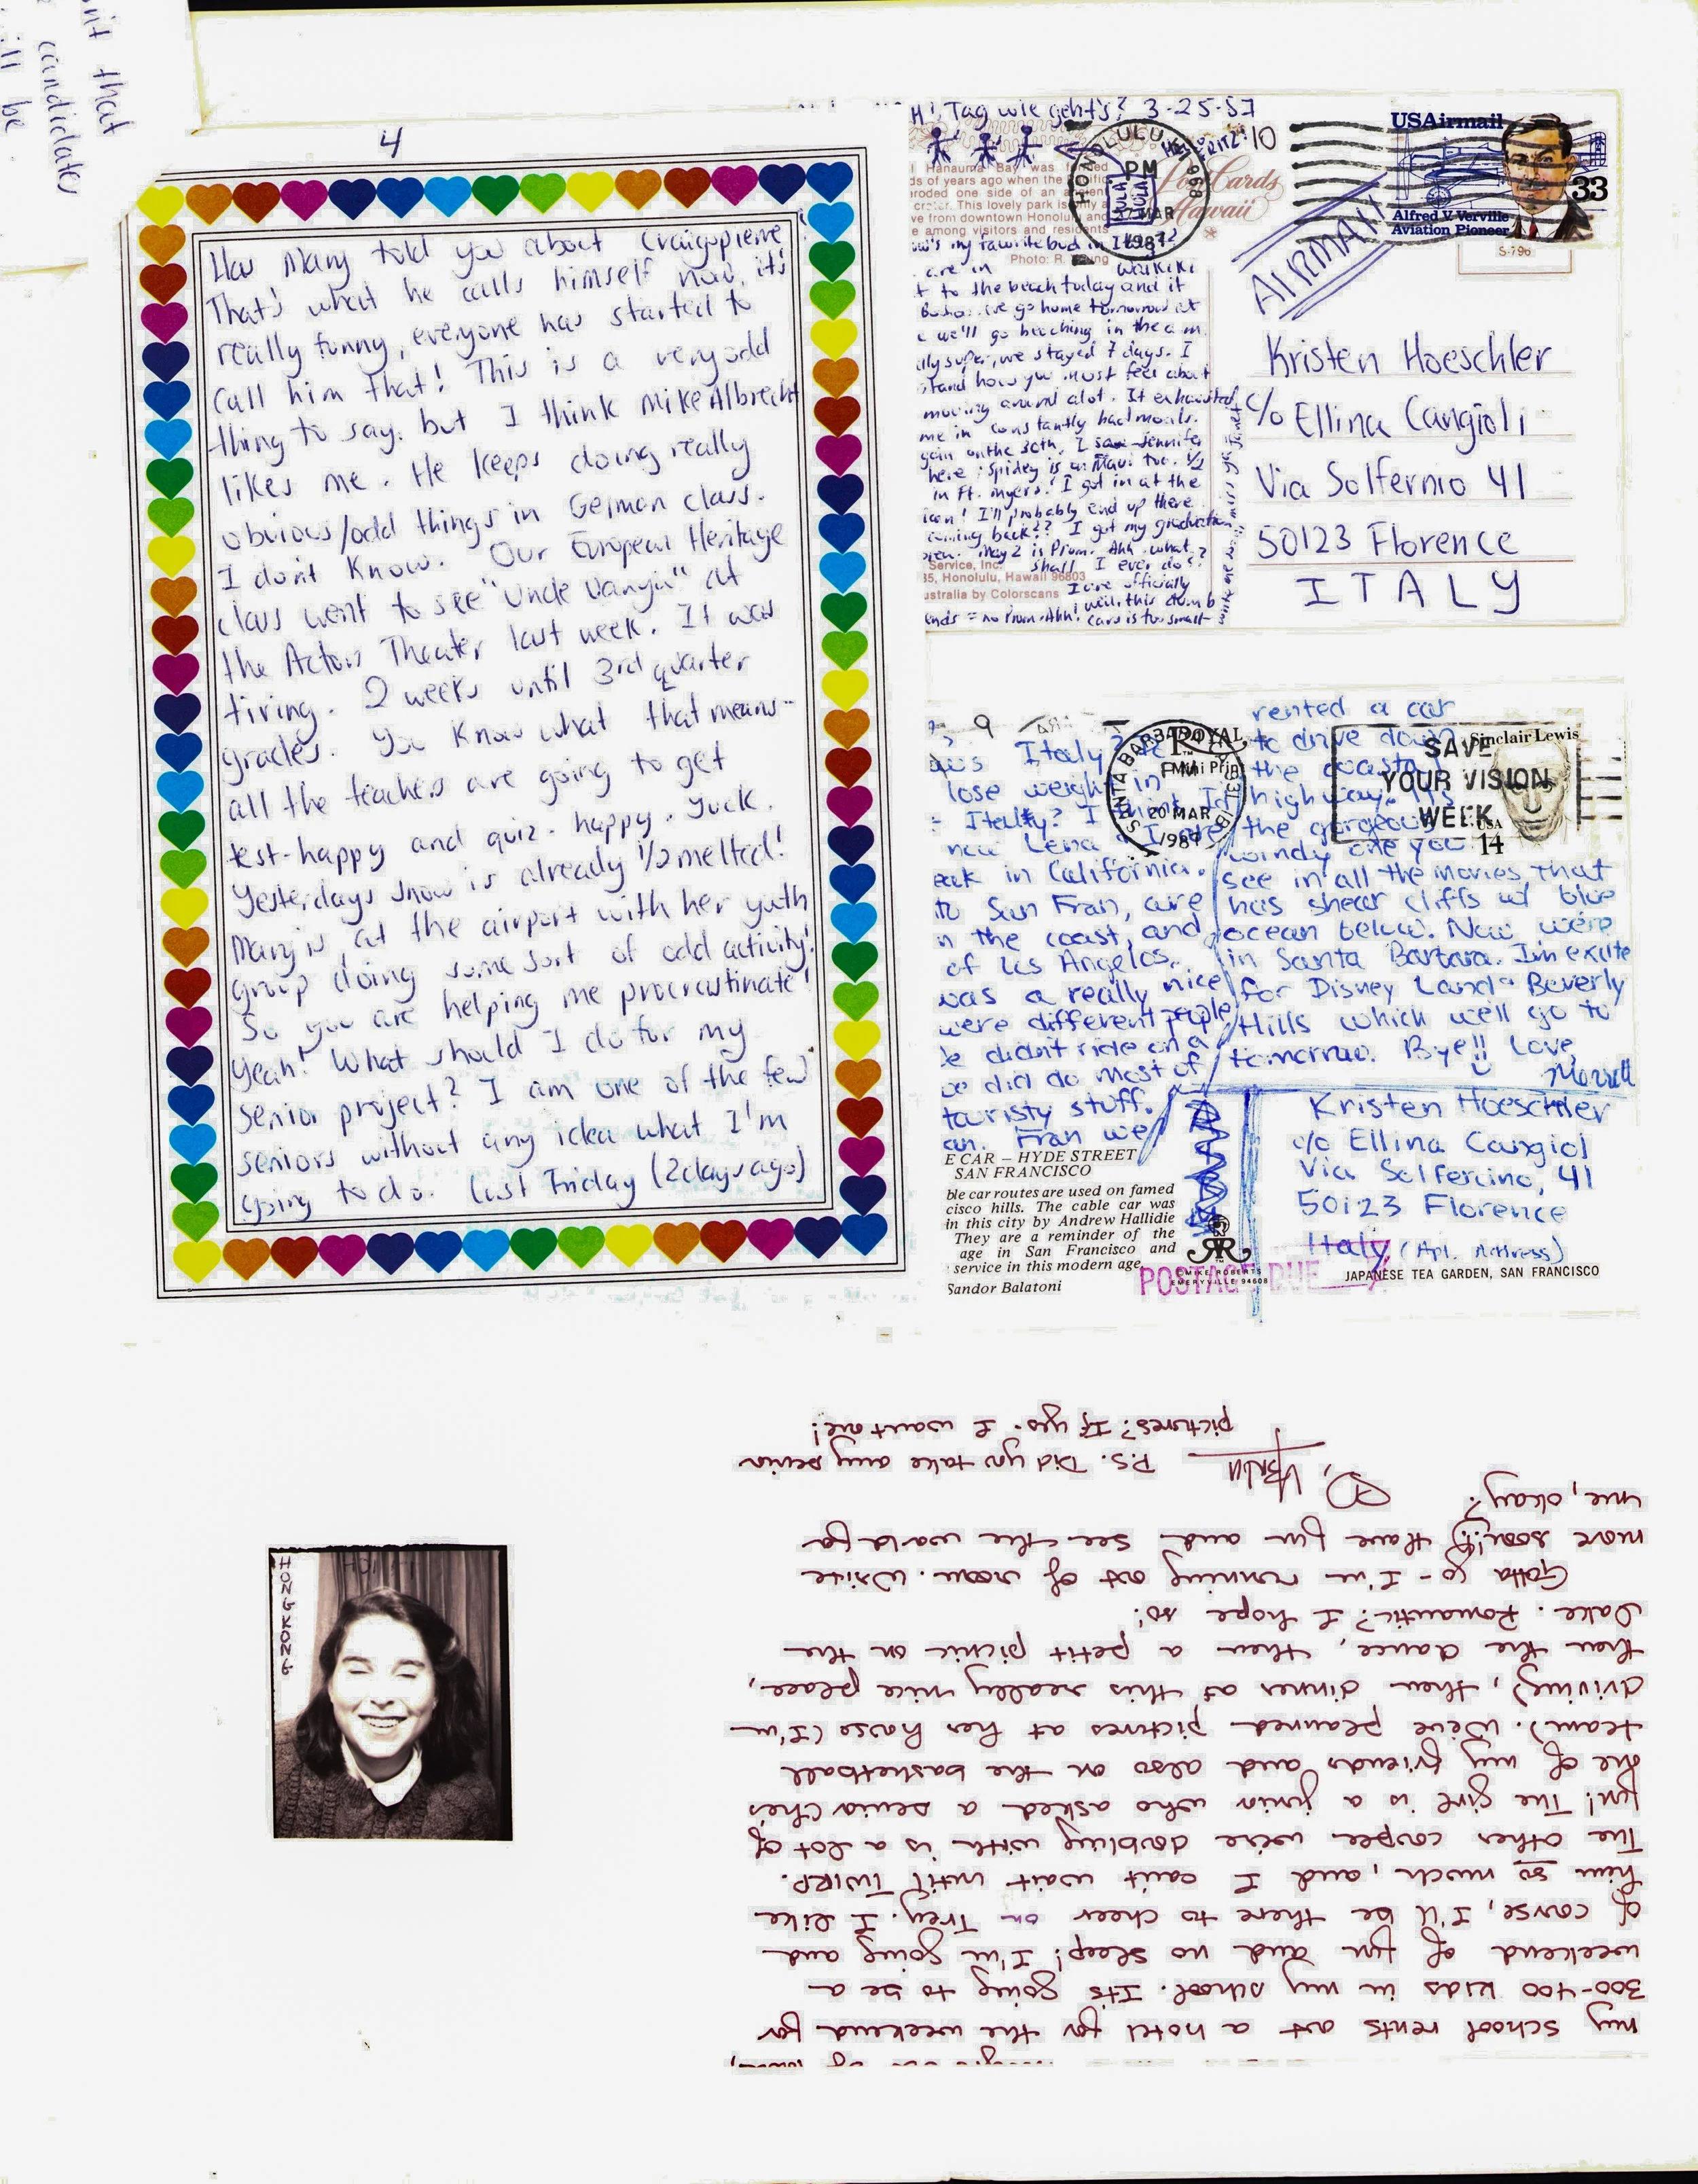 nit that
candidates
ill be
4
Has Mary told you about Craigopierre
That's what he calls himself now, it's
really funny, everyone has started to
call him that! This is a very odd
thing to say, but I think Mike Albrecht
likes me. He keeps doing really
obvious/odd things in German class.
I don't know. Our European Heritage
class went to see "Uncle Vanya" at
the Actors Theater last week. It was
tiring. 2 weeks until 3rd quarter
grades. You know what that means--
all the teachers are going to get
test-happy and quiz-happy. Yuck.
Yesterdays snow is already 1/2 melted!
Mary is at the airport with her youth
group doing some sort of odd activity!
So you are helping me procrastinate!
Yeah! What should I do for my
senior project? I am one of the few
seniors without any idea what I'm
going to do. Last Friday (2 days ago)
Hi, Tag wie geht's? 3-25-87
:10
HONOLULU, HI 968
PM
27 MAR
1987
Hanauma Bay was formed
ds of years ago when the
roded one side of an ancient
crater. This lovely park is only a
ve from downtown Honolulu and
e among visitors and residents
Photo: R.
Post Cards
Hawaii
USAirmail
33
Alfred V. Verville
Aviation Pioneer
S-796
AIRMAIL
's my favorite bud in
are in Waikiki
t to the beach today and it
we go home tomorrow at
we'll go beaching in the a.m.
lly super, we stayed 7 days. I
stand how you must feel about
moving around alot. It exhausted
me in constantly had meals.
gain on the 30th. I saw Jennifer
here; Spidey is in Maui too.
in Ft. Myers! I got in at the
icon! I'll probably end up there
coming back?? I got my graduation
May 2 is Prom. Ahh what
shall I ever do??
Service, Inc.
35, Honolulu, Hawaii 96803
ustralia by Colorscans
I are officially
ends = no Prom. Ahh! well, this dumb
card is too small-
Kristen Hoeschler
c/o Ellina Cangioli
Via Solfernio 41
50123 Florence
ITALY
Italy?
lose weight in
Italy? I think I'd
now Lena & I are
eak in California.
to San Fran, are
n the coast, and
of Los Angelos.
was a really nice
were different people
e didn't ride on a
we did do most of
touristy stuff.
an. Fran we
rented a car
to drive down
the coastal
highway. It's
the gorgeous
windy one you
see in all the movies that
has shear cliffs w/ blue
ocean below. Now we're
in Santa Barbara. I'm excite
for Disney Land & Beverly
Hills which we'll go to
tomorrow. Bye!! Love,
Merrill
SANTA BARBARA
20 MAR
1987
ROYAL
SAVE
YOUR VISION
WEEK
Sinclair Lewis
USA
14
E CAR – HYDE STREET
SAN FRANCISCO
ble car routes are used on famed
cisco hills. The cable car was
in this city by Andrew Hallidie
They are a reminder of the
age in San Francisco and
service in this modern age.
Sandor Balatoni
© MIKE ROBERTS
EMERYVILLE 94608
Kristen Hoeschler
c/o Ellina Cangiol
Via Solfercino, 41
50123 Florence
Italy (Apt. Address)
POSTAGE DUE
JAPANESE TEA GARDEN, SAN FRANCISCO
HONG KONG
my school rents out a hotel for the weekend for
300-400 kids in my school. It's going to be a
weekend of fun and no sleep! I'm going and
of course, I'll be there to cheer on Trey. I like
him so much, and I can't wait until TWIRP.
The other couple we're doubling with is a lot of
fun! The girl is a junior who asked a senior (he's
one of my friends and also on the basketball
team). We've planned pictures at her house (I'm
driving), then dinner at this really nice place,
then the dance, then a petit picnic on the
Lake. Romantic? I hope so!
Gotta go - I'm running out of room. Write
more soon!! Have fun and see the world for
me, okay?
P.S. Did you take any senior
pictures? If yes - I want one!